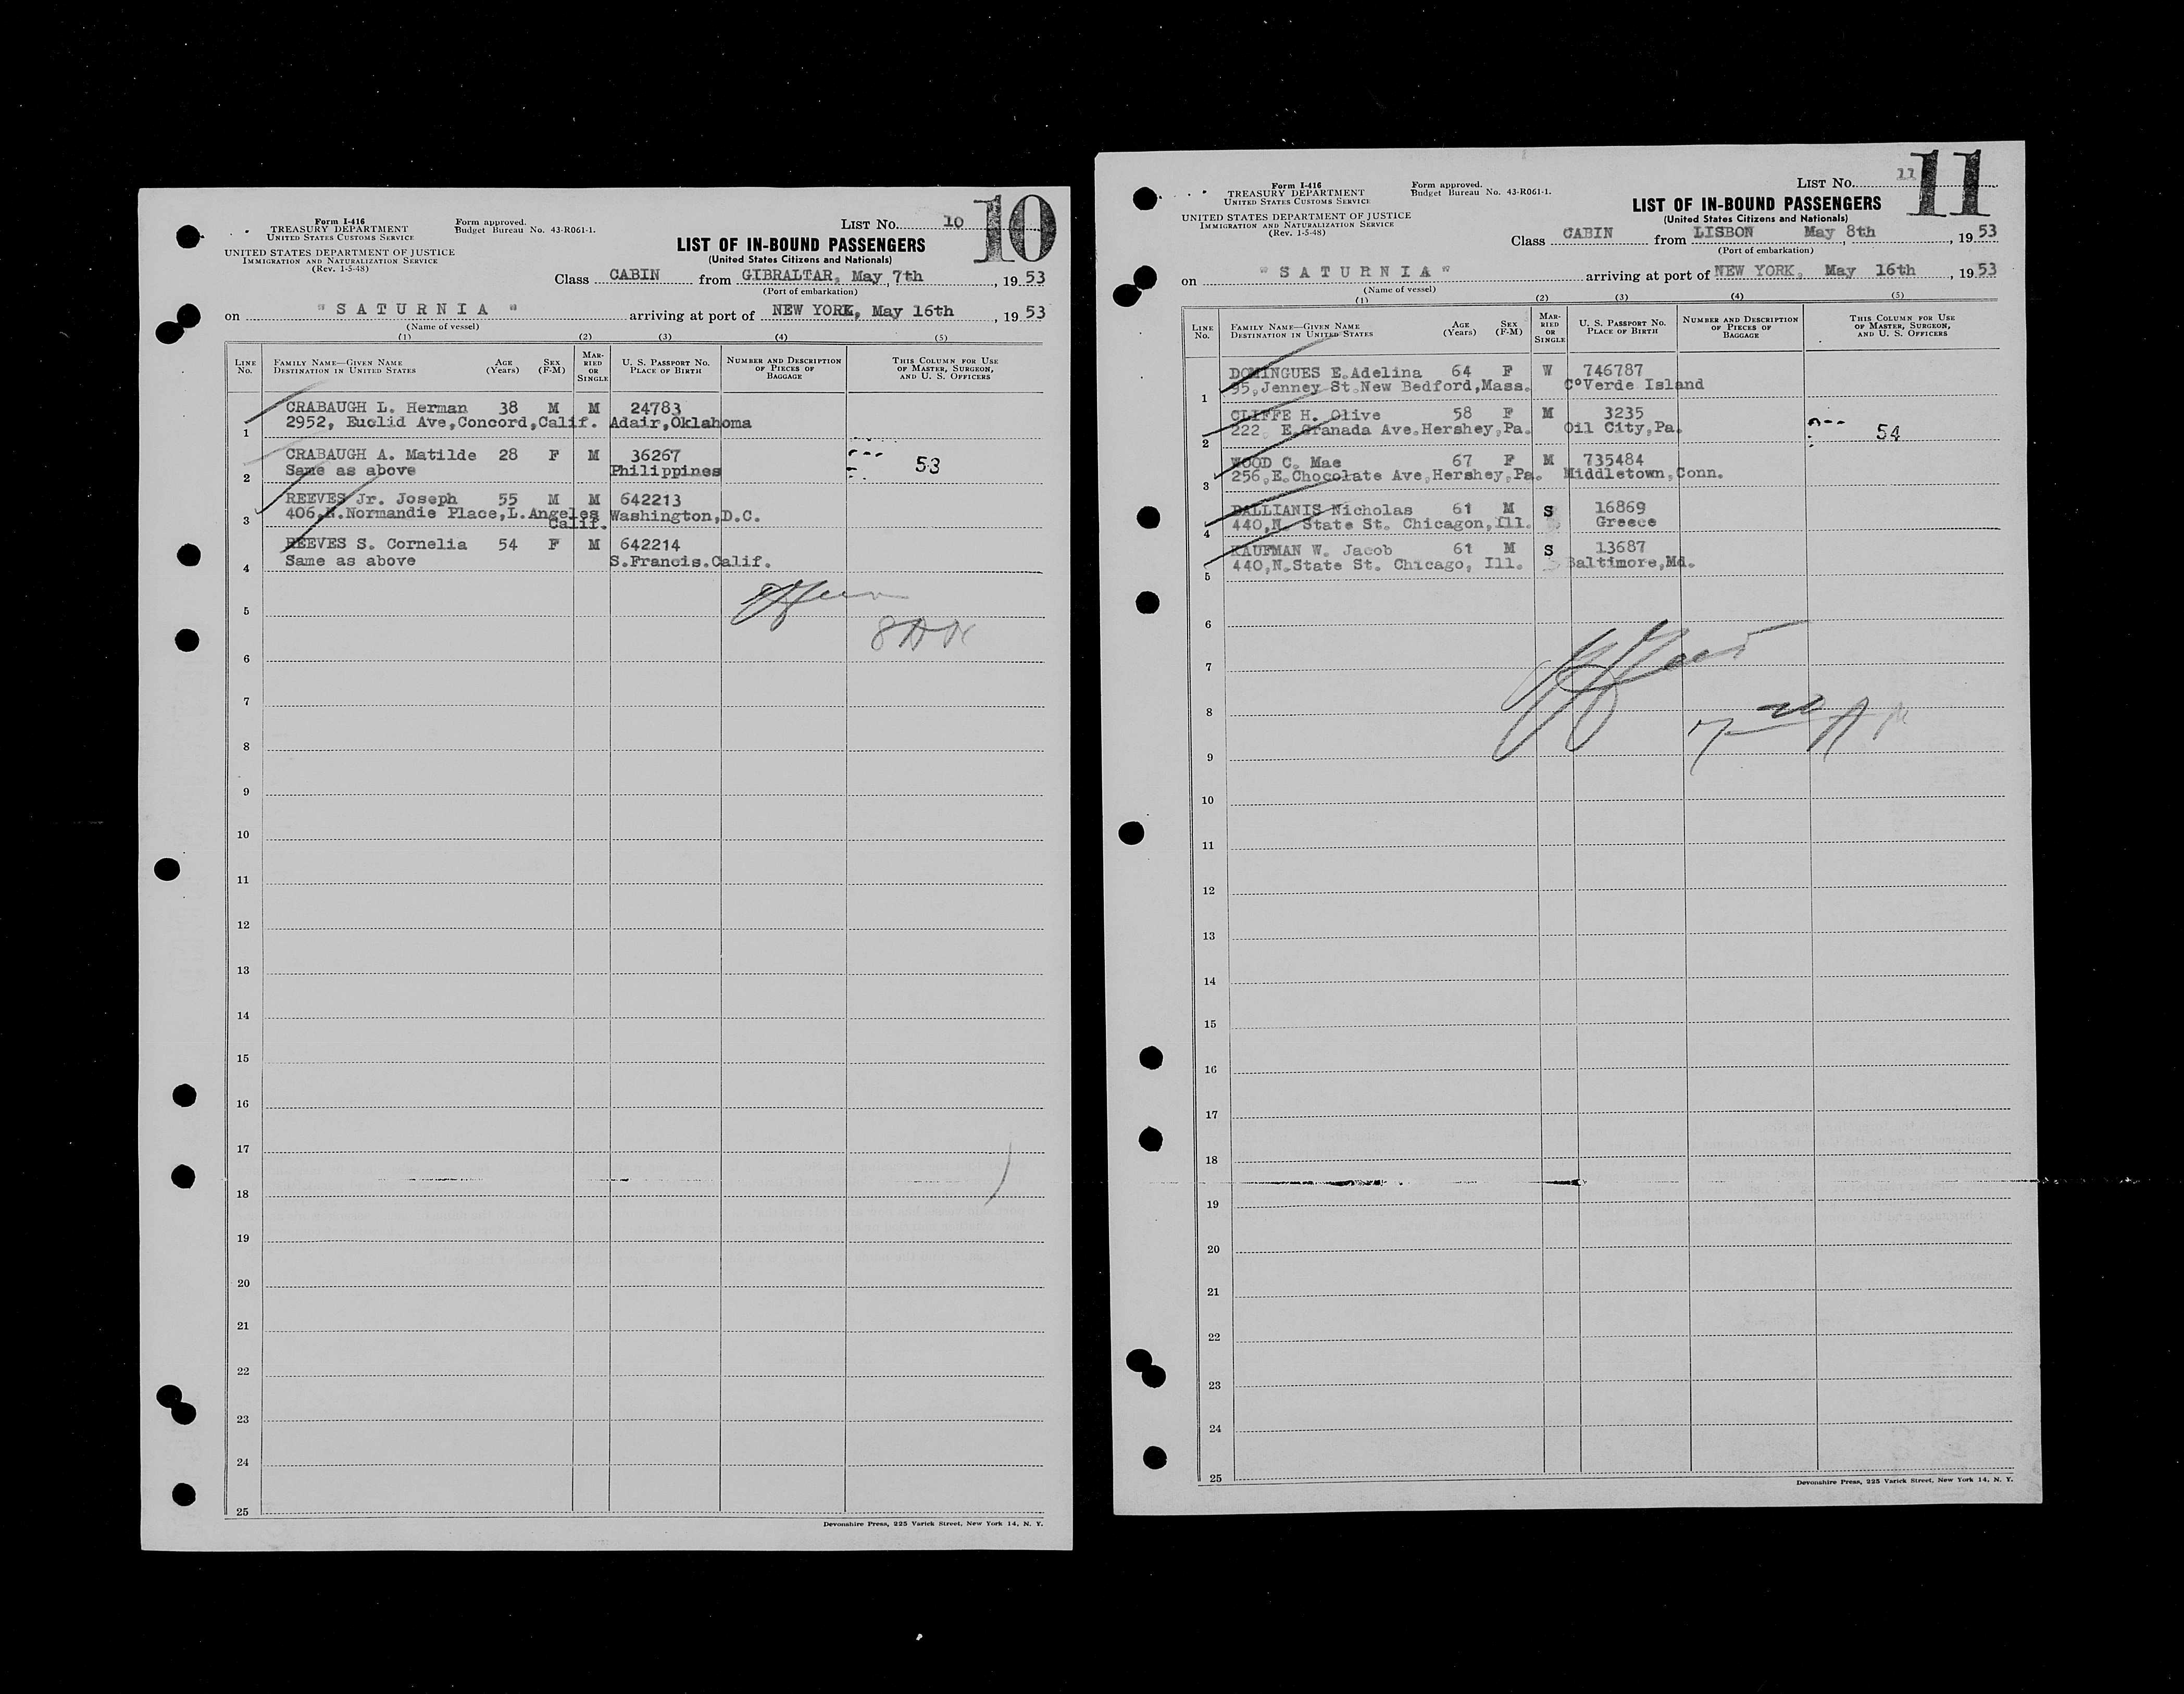 Form I-416
TREASURY DEPARTMENT
UNITED STATES CUSTOMS SERVICE
UNITED STATES DEPARTMENT OF JUSTICE
IMMIGRATION AND NATURALIZATION SERVICE
(Rev. 1-5-48)
Form approved.
Budget Bureau No. 43-R061-1.
LIST No. 10
10
LIST OF IN-BOUND PASSENGERS
(United States Citizens and Nationals)
Class CABIN from GIBRALTAR, May 7th, 19 53
(Port of embarkation)
on "SATURNIA" arriving at port of NEW YORK, May 16th, 19 53
(Name of vessel)
(1) (2) (3) (4) (5)
LINE No. FAMILY NAME—GIVEN NAME DESTINATION IN UNITED STATES AGE (Years) SEX (F-M) MARRIED OR SINGLE U. S. PASSPORT NO. PLACE OF BIRTH NUMBER AND DESCRIPTION OF PIECES OF BAGGAGE THIS COLUMN FOR USE OF MASTER, SURGEON, AND U. S. OFFICERS
CRABAUGH L. Herman 38 M M 24783
1 2952, Euclid Ave,Concord,Calif. Adair,Oklahoma
CRABAUGH A. Matilde 28 F M 36267
2 Same as above Philippines 53
REEVES Jr. Joseph 55 M M 642213
3 406,N.Normandie Place,L.Angeles Calif. Washington,D.C.
REEVES S. Cornelia 54 F M 642214
4 Same as above S.Francis.Calif.
5
6
7
8
9
10
11
12
13
14
15
16
17
18
19
20
21
22
23
24
25
Devonshire Press, 225 Varick Street, New York 14, N. Y.
Form I-416
TREASURY DEPARTMENT
UNITED STATES CUSTOMS SERVICE
UNITED STATES DEPARTMENT OF JUSTICE
IMMIGRATION AND NATURALIZATION SERVICE
(Rev. 1-5-48)
Form approved.
Budget Bureau No. 43-R061-1.
LIST No. 11
11
LIST OF IN-BOUND PASSENGERS
(United States Citizens and Nationals)
Class CABIN from LISBON May 8th, 19 53
(Port of embarkation)
on "SATURNIA" arriving at port of NEW YORK, May 16th, 19 53
(Name of vessel)
(1) (2) (3) (4) (5)
LINE No. FAMILY NAME—GIVEN NAME DESTINATION IN UNITED STATES AGE (Years) SEX (F-M) MARRIED OR SINGLE U. S. PASSPORT NO. PLACE OF BIRTH NUMBER AND DESCRIPTION OF PIECES OF BAGGAGE THIS COLUMN FOR USE OF MASTER, SURGEON, AND U. S. OFFICERS
DOMINGUES E.Adelina 64 F W 746787
1 95,Jenney St.New Bedford,Mass. C°Verde Island
CLIFFE H. Olive 58 F M 3235
2 222 E.Granada Ave.Hershey,Pa. Oil City,Pa. 54
WOOD C. Mae 67 F M 735484
3 256,E.Chocolate Ave,Hershey,Pa. Middletown,Conn.
DALLIANIS Nicholas 61 M S 16869
4 440,N. State St. Chicagon,Ill. Greece
KAUFMAN W. Jacob 61 M S 13687
5 440,N.State St. Chicago, Ill. Baltimore,Md.
6
7
8
9
10
11
12
13
14
15
16
17
18
19
20
21
22
23
24
25
Devonshire Press, 225 Varick Street, New York 14, N. Y.